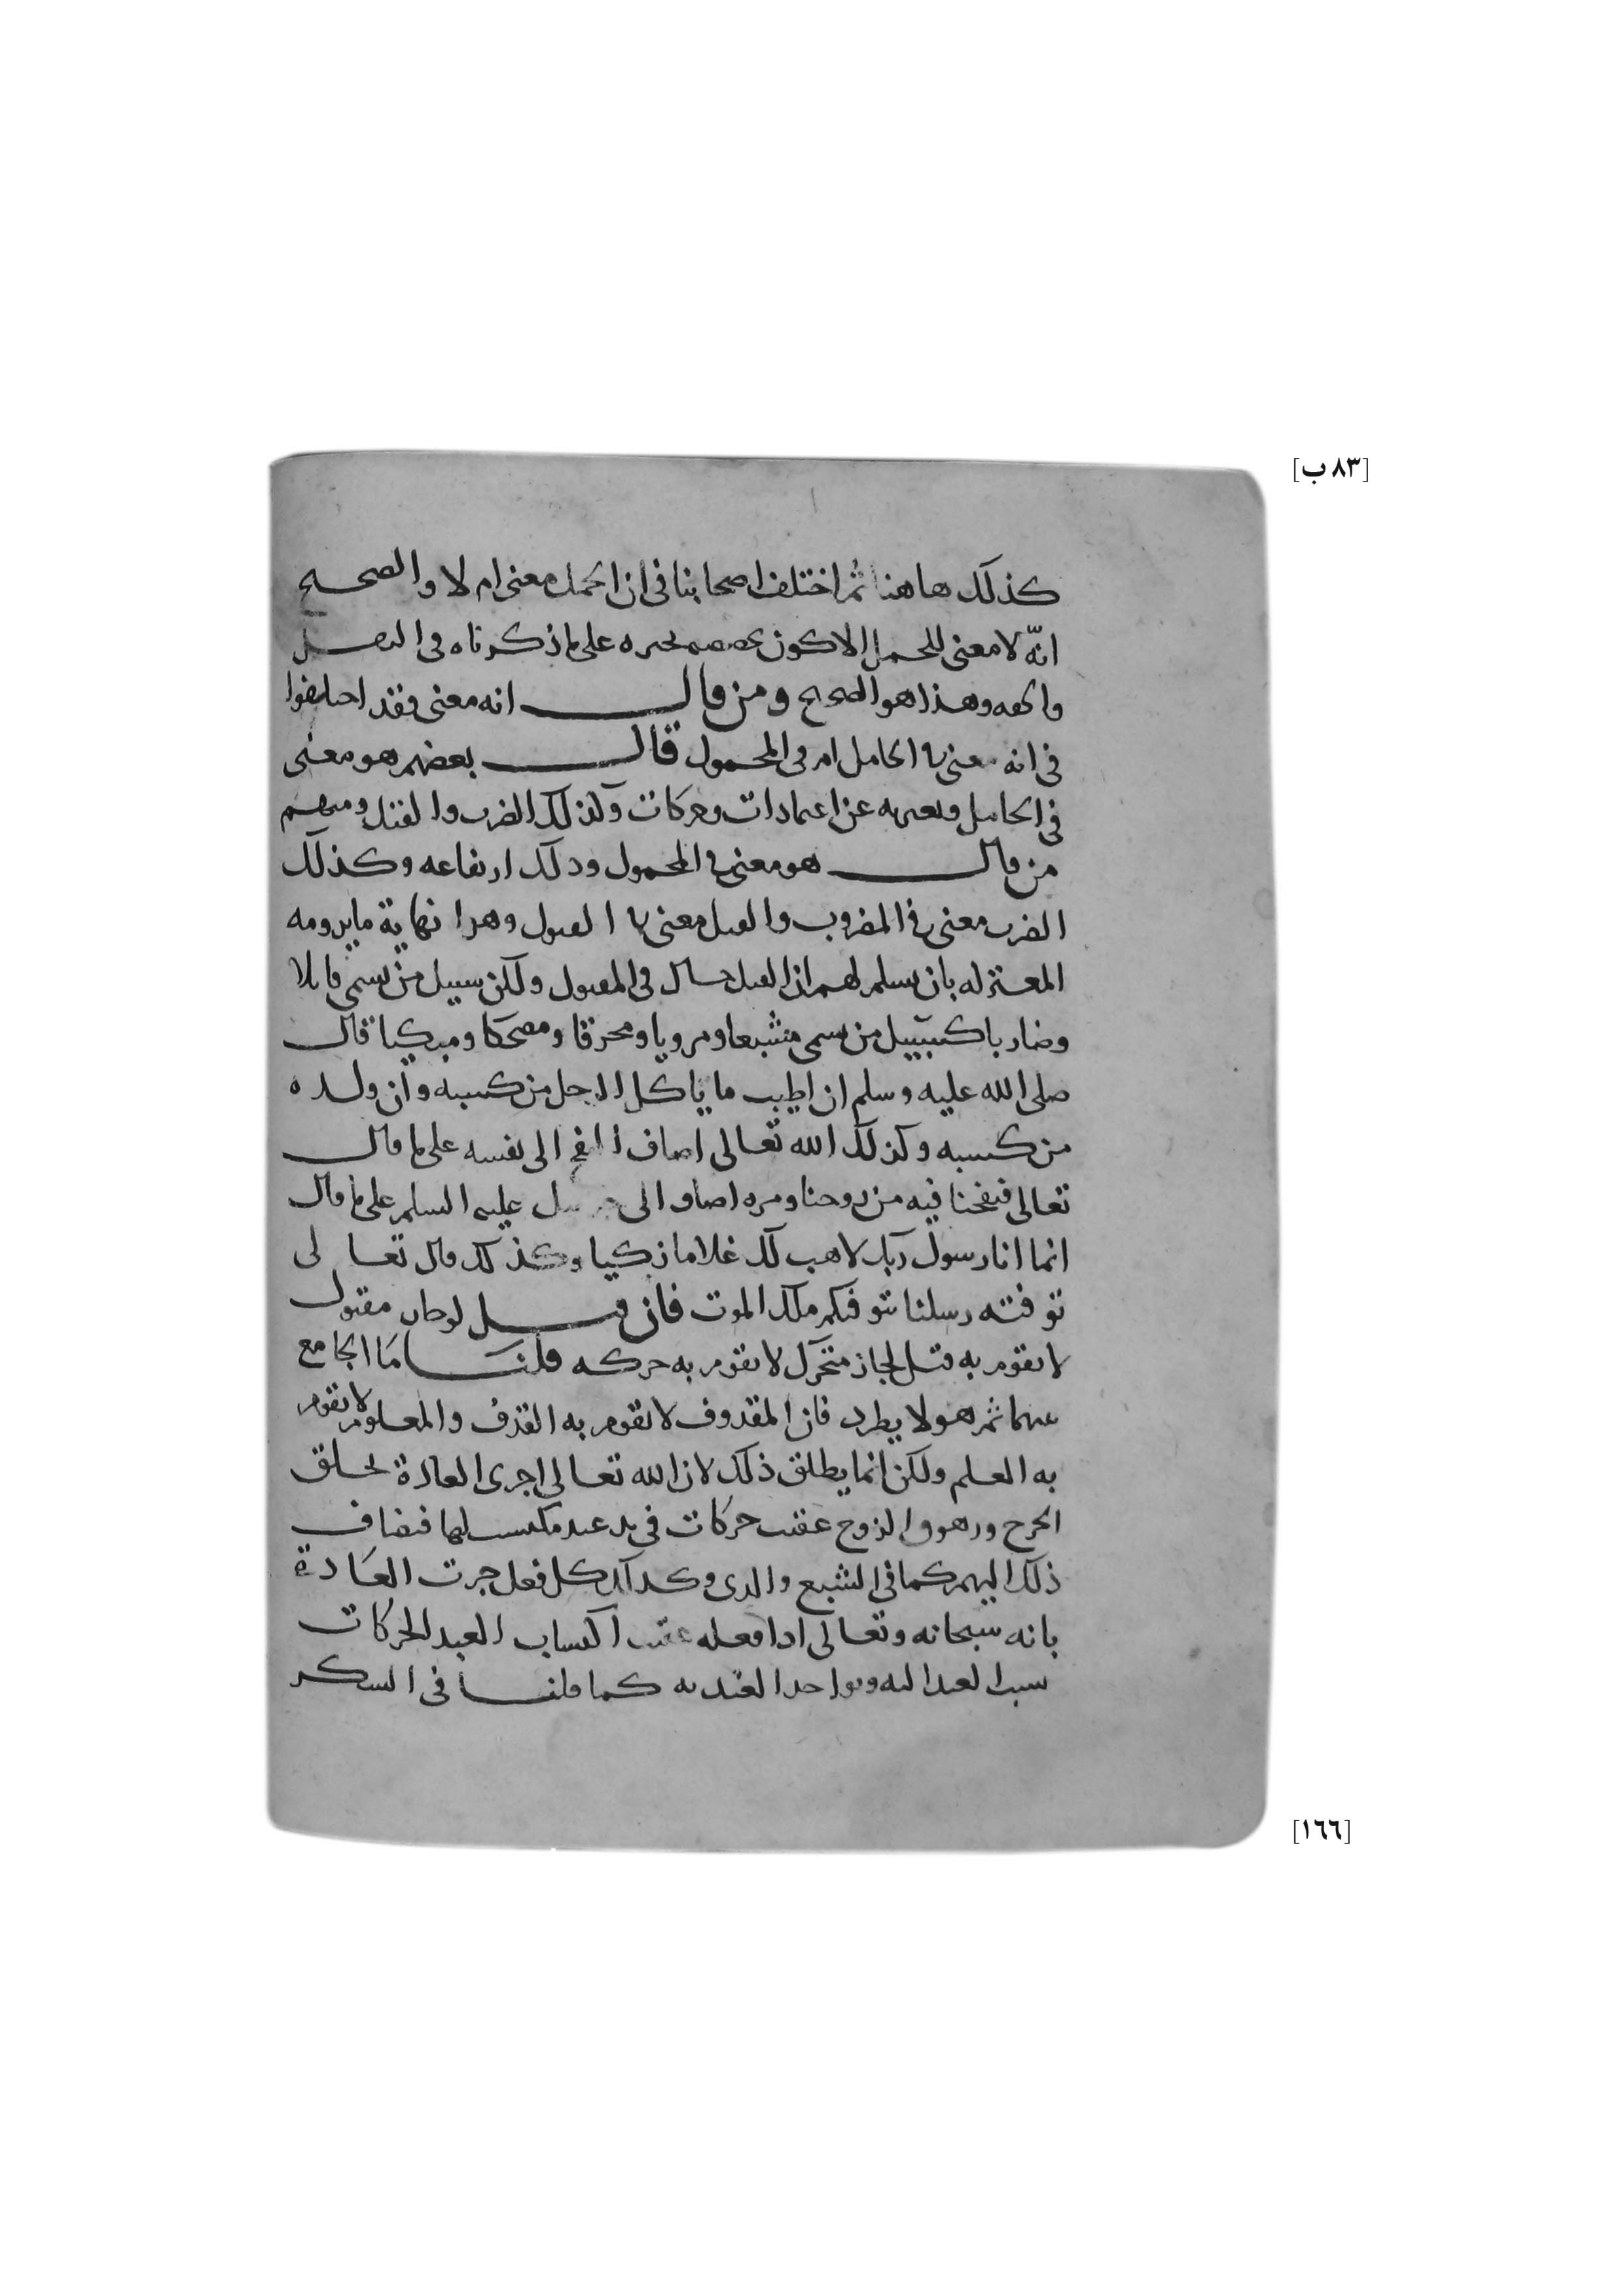 [٨٣ ب]
كذلك هاهنا ثم اختلف اصحابنا فى ان الحمل معنى ام لا والصحيح
انّه لا معنى للحمل الا كون على ما ذكرناه فى الثقل
والخفه وهذا هو الصحيح ومن قال انه معنى فقد اختلفوا
فى انه معنى فى الحامل ام فى المحمول قال بعضهم هو معنى
فى الحامل عن اعتمادات وحركات وكذلك الضرب والقتل ومنهم
من قال هو معنى فى المحمول وذلك ارتفاعه وكذلك
الضرب معنى فى المضروب والقتل معنى فى المقتول وهذا نهاية ما يرومه
المعتزله بان يسلم لهم ان القتل حال فى المقتول ولكن سبيل من يسمى قاتلا
وضاربا كسبيل من يسمى مشبعا ومرويا ومحرقا ومضحكا ومبكيا قال
صلى الله عليه وسلم ان اطيب ما ياكل الرجل من كسبه وان ولده
من كسبه وكذلك الله تعالى اضاف النفخ الى نفسه على ما قال
تعالى فنفخنا فيه من روحنا ومره اضاف الى جبريل عليه السلم على ما قال
انما انا رسول ربك لاهب لك غلاما زكيا وكذلك قال تعالى
توفته رسلنا يتوفكم ملك الموت فان قيل لو جاز مقتول
لا يقوم به قتل لجاز متحرك لا يقوم به حركه قلنا ما الجامع
بينهما ثم هو لا يطرد فان المقذوف لا يقوم به القذف والمعلوم لا يقوم
به العلم ولكن انما يطلق ذلك لان الله تعالى اجرى العادة بخلق
الجرح وزهوق الروح عقب حركات فى يد عبد مكتسب لها فيضاف
ذلك اليهم كما فى الشبع والرى وكذلك كل فعل جرت العادة
بانه سبحانه وتعالى اذا فعله عقب اكتساب العبد الحركات
العبد اليه كما قلنا فى السكر
[١٦٦]